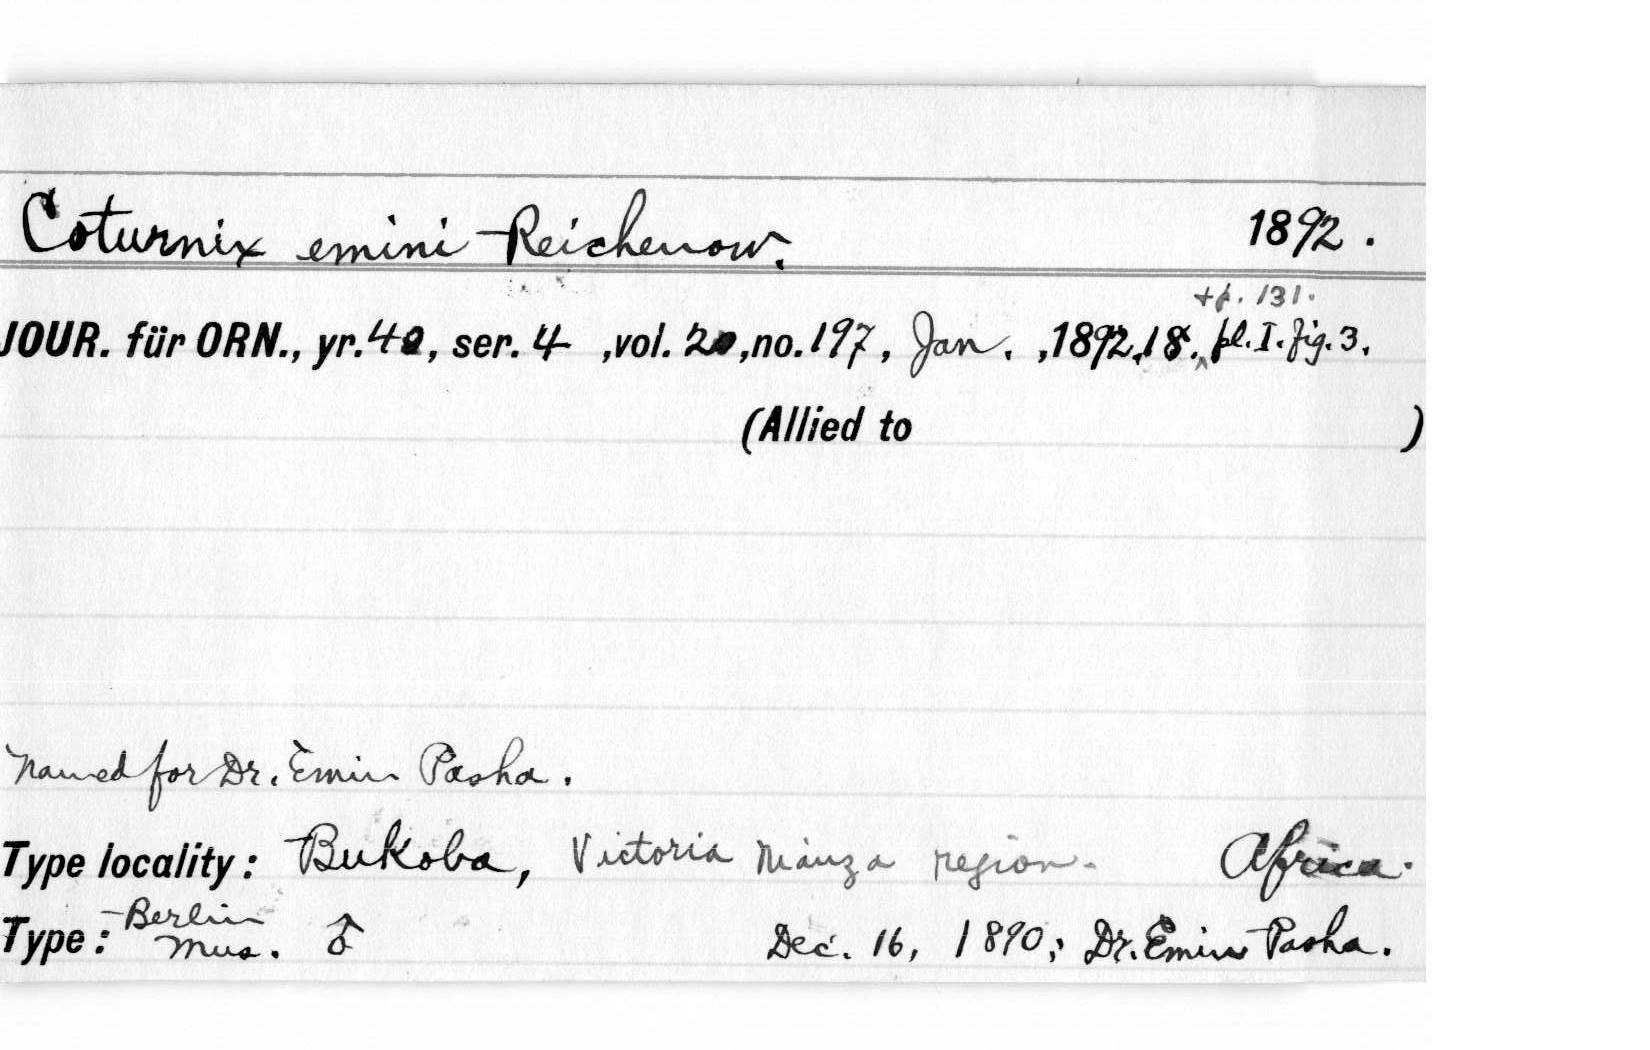 Coturnix emini Reichenow. 1892.
+p. 131.
JOUR. für ORN., yr. 40, ser. 4 , vol. 20, no. 197, Jan. , 1892, 18., pl. I. fig. 3.
(Allied to )
Named for Dr. Emin Pasha.
Type locality: Bukoba, Victoria Nianza region. Africa.
Type: Berlin Mus. ♂ Dec. 16, 1890; Dr. Emin Pasha.